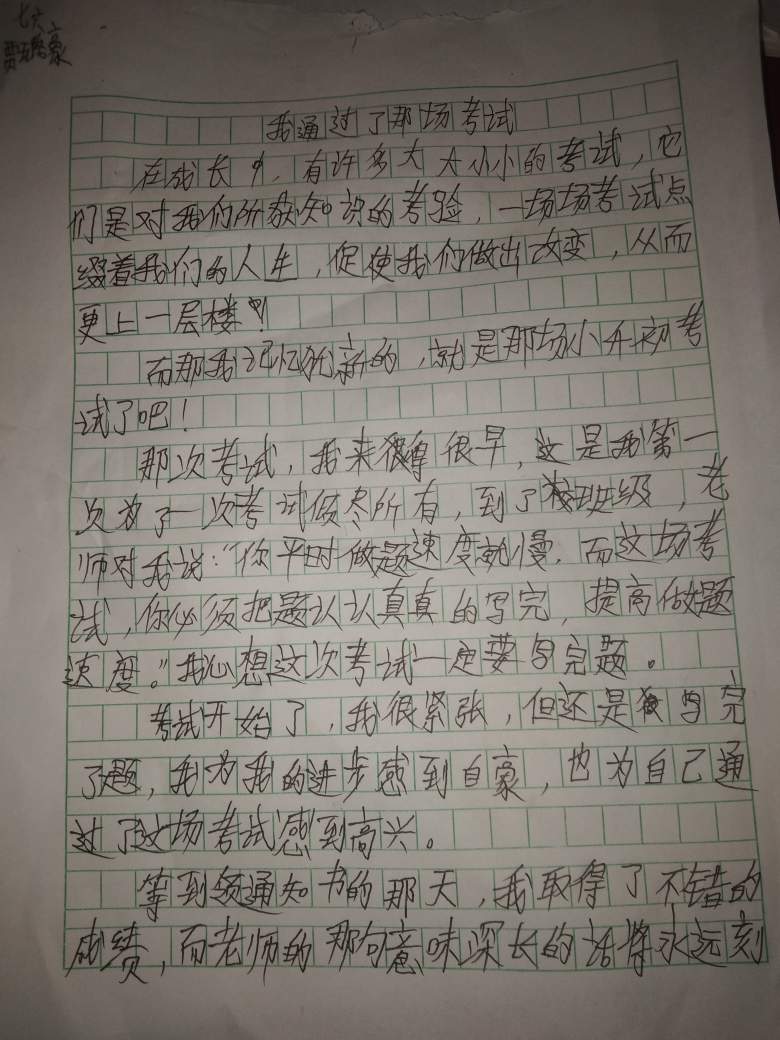 七六
我通过了那场考试
在成长中，有许多大大小小的考试，它
们是对我们所获知识的考验，一场场考试点
缀着我们的人生，促使我们做出改变，从而
更上一层楼！
而那我记忆犹新的，就是那场小升初考
试了吧！
那次考试，我来得很早，这是我第一
次为了一次考试倾尽所有，到了班级，老
师对我说：“你平时做题速度就慢，而这场考
试，你必须把题认认真真的写完，提高做题
速度。”我心想这次考试一定要写完题。
考试开始了，我很紧张，但还是写完
了题，我为我的进步感到自豪，也为自己通
过了这场考试感到高兴。
等到领通知书的那天，我取得了不错的
成绩，而老师的那句意味深长的话将永远刻